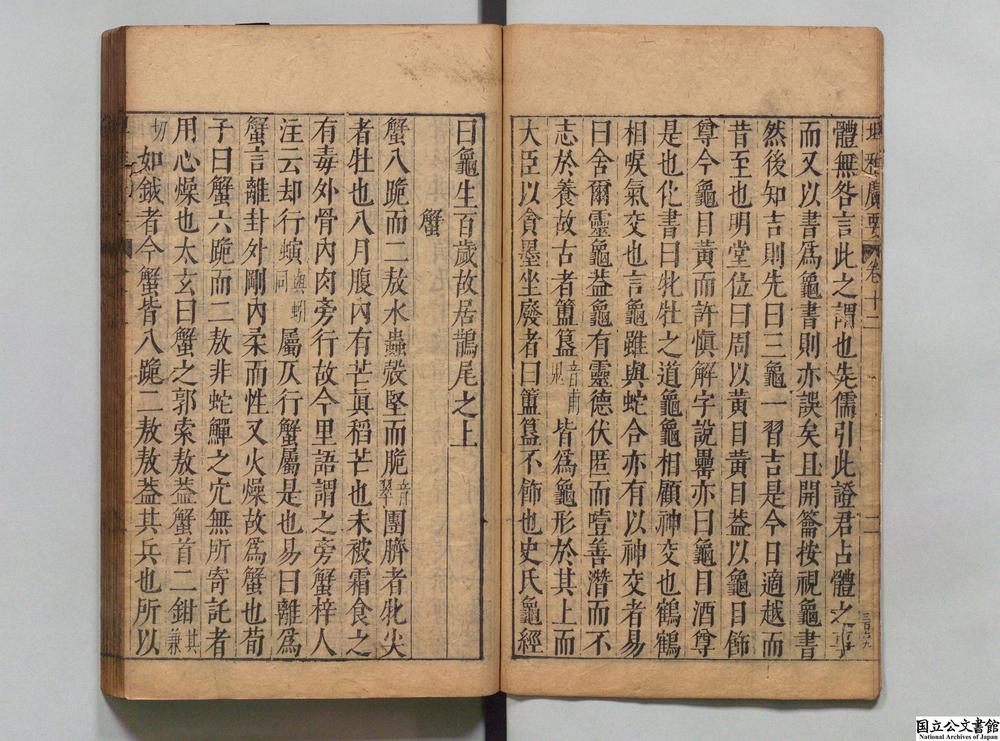 體無咎言此之謂也先儒引此證君占體之事
而又以書爲龜書則亦誤矣且開籥按視龜書
然後知吉則先曰三龜一習吉是今日適越而
昔至也明堂位曰周以黃目黃目葢以龜目飾
尊今龜目黃而許愼解字說罍亦曰龜目酒尊
是也化書曰牝牡之道龜龜相顧神交也鶴鶴
相唳氣交也言龜雖與蛇合亦有以神交者易
曰舍爾靈龜葢龜有靈德伏匿而噎善潛而不
志於養故古者簠簋音甫軌皆爲龜形於其上而
大臣以貪墨坐廢者曰簠簋不飾也史氏龜經
埤雅廣要 卷十二 二
曰龜生百歲故居鵲尾之上
蟹
蟹八跪而二敖水蟲殼堅而脆音翠團臍者牝尖
者牡也八月腹內有芒眞稻芒也未被霜食之
有毒外骨內肉旁行故今里語謂之旁蟹梓人
注云却行螾與蚓同屬仄行蟹屬是也易曰離爲
蟹言離卦外剛內柔而性又火燥故爲蟹也荀
子曰蟹六跪而二敖非蛇鱓之穴無所寄託者
用心燥也太玄曰蟹之郭索敖葢蟹首二鉗其兼
切如鉞者今蟹皆八跪二敖敖葢其兵也所以
国立公文書館
National Archives of Japan